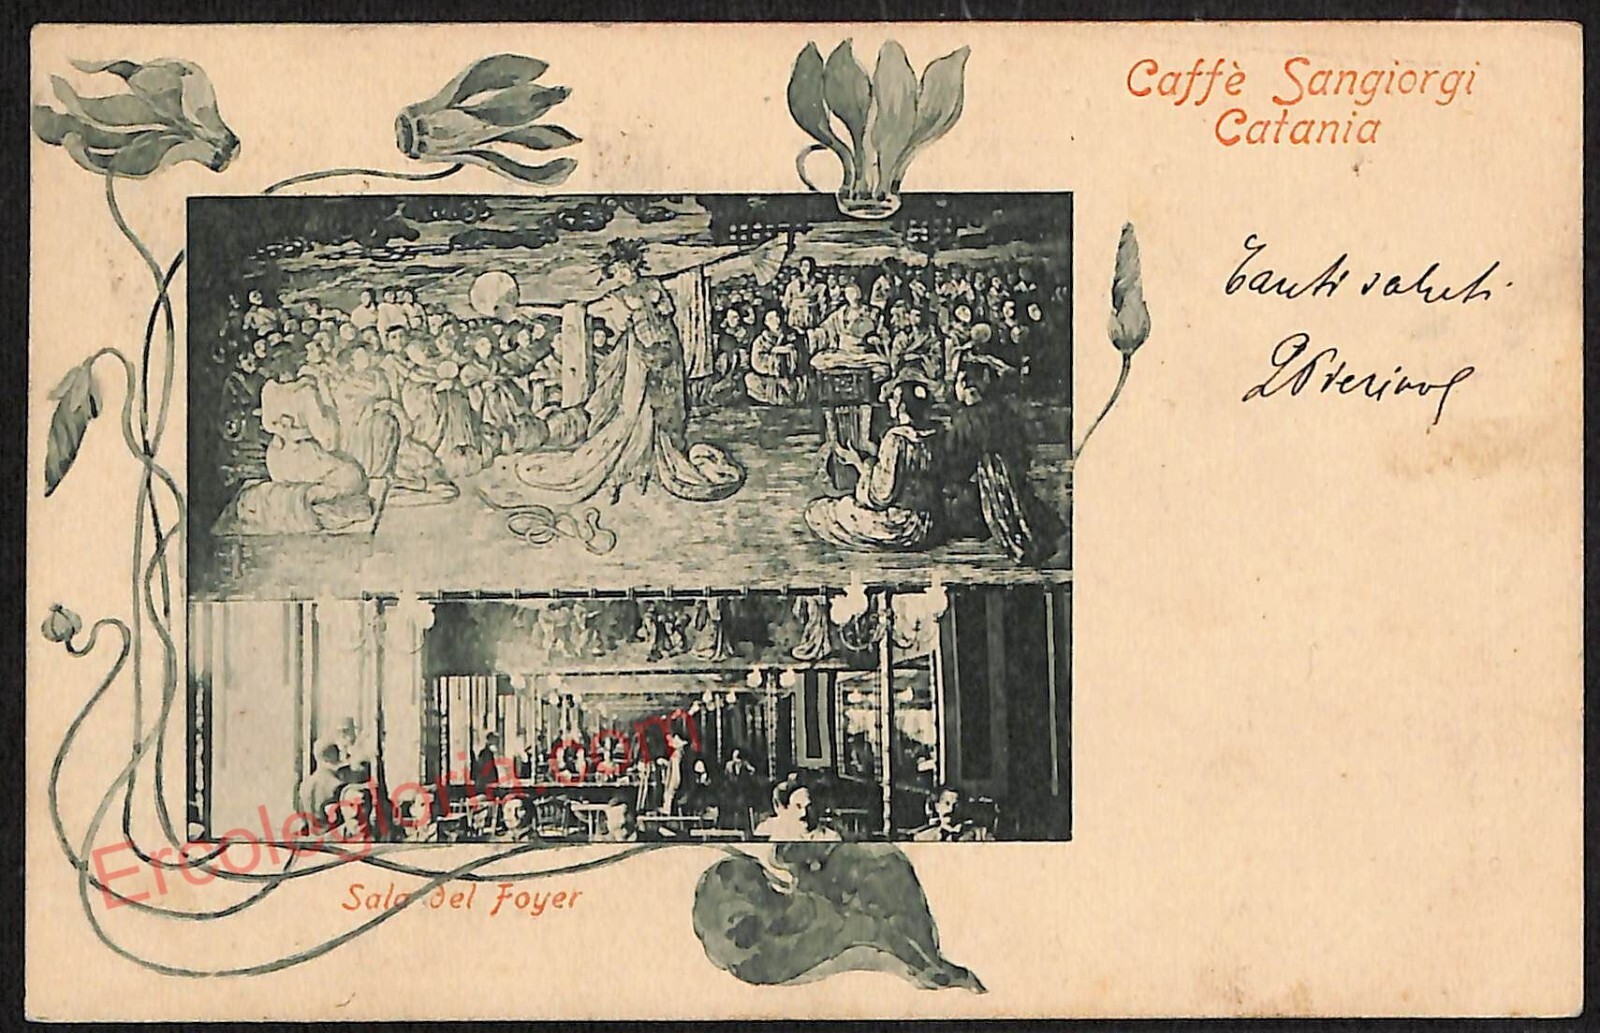 Caffè Sangiorgi
Catania
Tanti saluti
Sala del Foyer
Ercolegloria.com